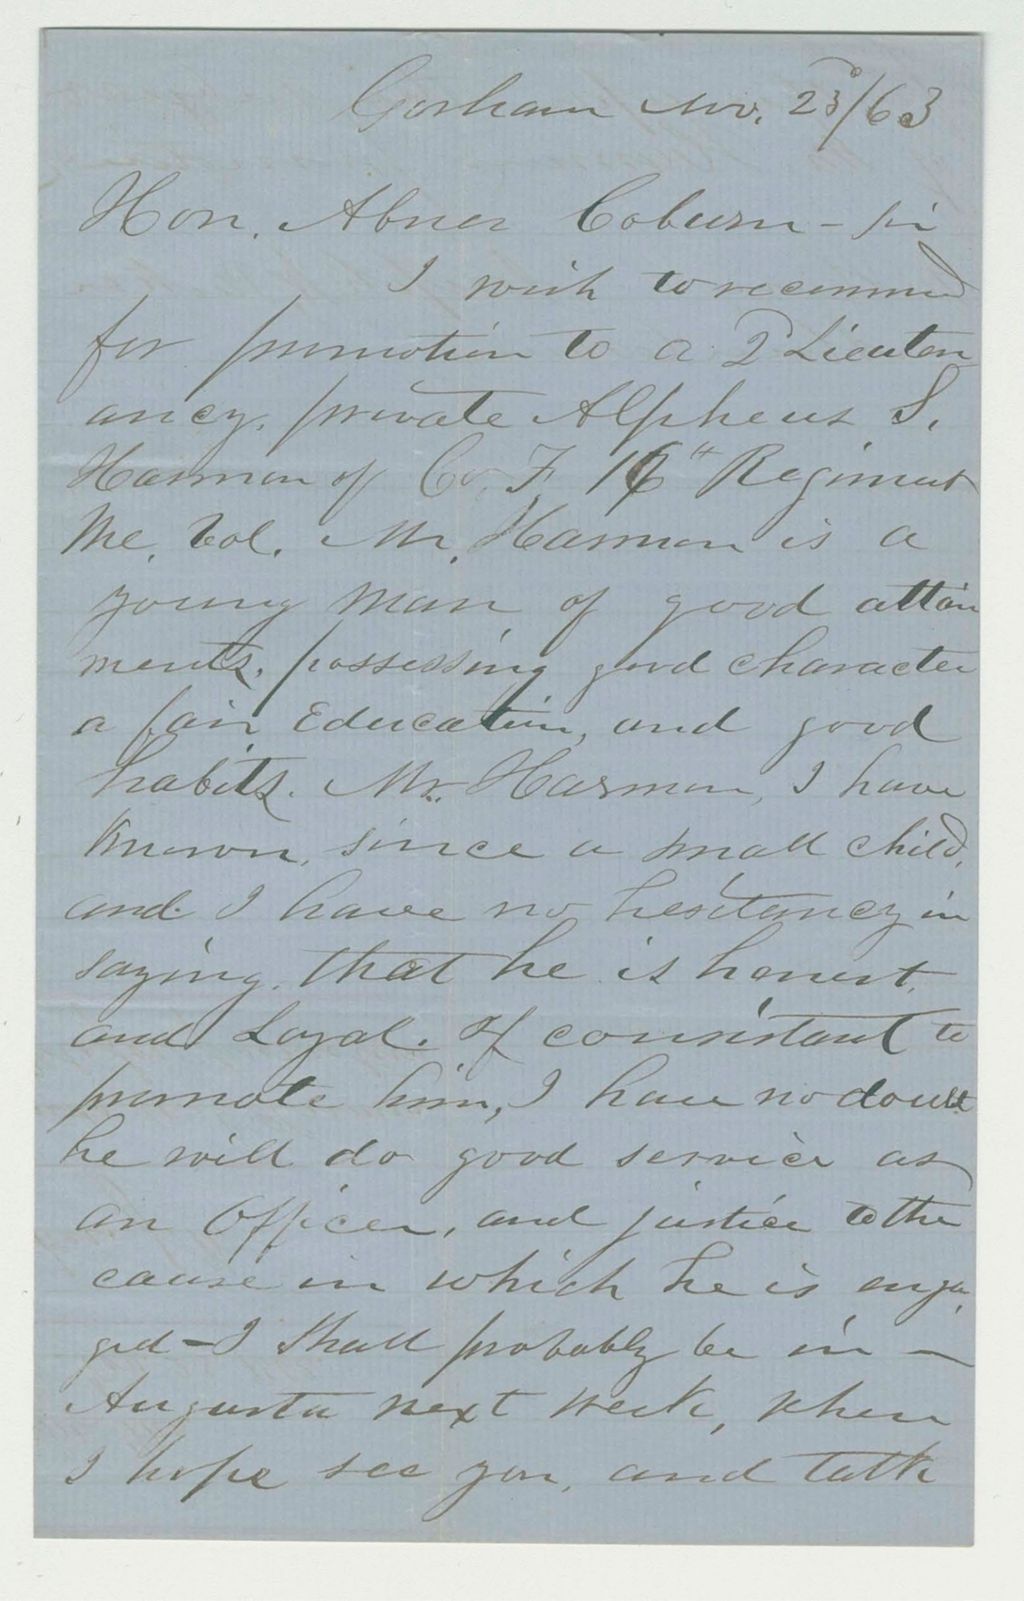 Gorham Nov. 23ᵈ/63
Hon. Abner Coburn - Sir
I wish to recommend
for promotion to a 2ᵈ Lieuten
ancy, private Alpheus S.
Harmon of Co. F, 16ᵗʰ Regiment
Me. Vol. Mr. Harmon is a
young man of good attain
ments, possessing good character
a fair Education, and good
habits. Mr. Harmon, I have
known, since a small child,
and I have no hesitancy in
saying, that he is honest,
and Loyal. If consistant to
promote him, I have no doubt
he will do good service as
an Officer, and justice to the
cause in which he is enga
ged - I shall probably be in -
Augusta next week, when
I hope see you, and talk